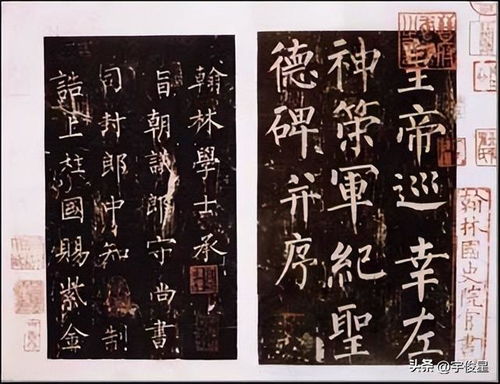 皇帝巡幸左
神策軍紀聖
德碑并序
翰林學士承
旨朝議郎守尚書
司封郎中知制
誥上柱國賜紫金
翰林國史院官書
头条 @宇俊星